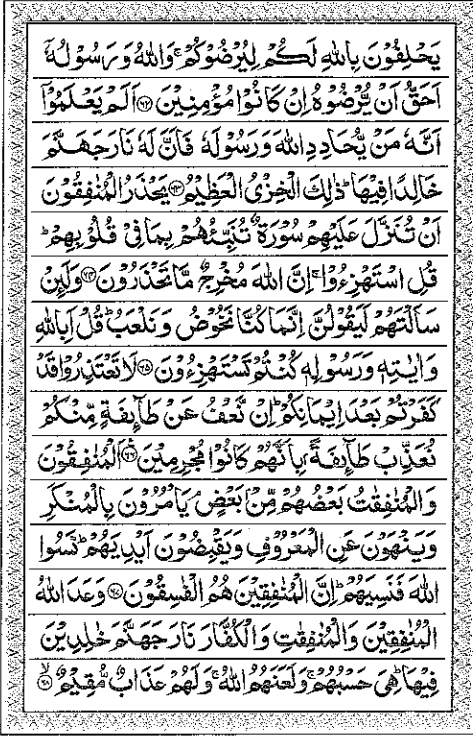 يَحْلِفُوْنَ بِاللّٰهِ لَكُمْ لِيُرْضُوْكُمْ ۚ وَاللّٰهُ وَرَسُوْلُهٗۤ
اَحَقُّ اَنْ يُّرْضُوْهُ اِنْ كَانُوْا مُؤْمِنِيْنَ ﴿۶۲﴾ اَلَمْ يَعْلَمُوْۤا
اَنَّهٗ مَنْ يُّحَادِدِ اللّٰهَ وَرَسُوْلَهٗ فَاَنَّ لَهٗ نَارَ جَهَنَّمَ
خَالِدًا فِيْهَا ؕ ذٰلِكَ الْخِزْىُ الْعَظِيْمُ ﴿۶۳﴾ يَحْذَرُ الْمُنٰفِقُوْنَ
اَنْ تُنَزَّلَ عَلَيْهِمْ سُوْرَةٌ تُنَبِّئُهُمْ بِمَا فِىْ قُلُوْبِهِمْ ؕ
قُلِ اسْتَهْزِءُوْا ۚ اِنَّ اللّٰهَ مُخْرِجٌ مَّا تَحْذَرُوْنَ ﴿۶۴﴾ وَلَئِنْ
سَاَلْتَهُمْ لَيَقُوْلُنَّ اِنَّمَا كُنَّا نَخُوْضُ وَنَلْعَبُ ؕ قُلْ اَبِاللّٰهِ
وَاٰيٰتِهٖ وَرَسُوْلِهٖ كُنْتُمْ تَسْتَهْزِءُوْنَ ﴿۶۵﴾ لَا تَعْتَذِرُوْا قَدْ
كَفَرْتُمْ بَعْدَ اِيْمَانِكُمْ ؕ اِنْ نَّعْفُ عَنْ طَآئِفَةٍ مِّنْكُمْ
نُعَذِّبْ طَآئِفَةًۢ بِاَنَّهُمْ كَانُوْا مُجْرِمِيْنَ ﴿۶۶﴾ اَلْمُنٰفِقُوْنَ
وَالْمُنٰفِقٰتُ بَعْضُهُمْ مِّنْۢ بَعْضٍ ۘ يَاْمُرُوْنَ بِالْمُنْكَرِ
وَيَنْهَوْنَ عَنِ الْمَعْرُوْفِ وَيَقْبِضُوْنَ اَيْدِيَهُمْ ؕ نَسُوا
اللّٰهَ فَنَسِيَهُمْ ؕ اِنَّ الْمُنٰفِقِيْنَ هُمُ الْفٰسِقُوْنَ ﴿۶۷﴾ وَعَدَ اللّٰهُ
الْمُنٰفِقِيْنَ وَالْمُنٰفِقٰتِ وَالْكُفَّارَ نَارَ جَهَنَّمَ خٰلِدِيْنَ
فِيْهَا ؕ هِىَ حَسْبُهُمْ ۚ وَلَعَنَهُمُ اللّٰهُ ۚ وَلَهُمْ عَذَابٌ مُّقِيْمٌ ﴿ۙ۶۸﴾